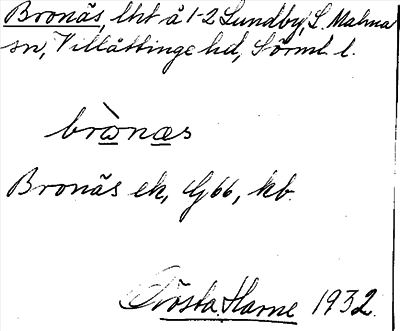 Bronäs, lht å 1-2 Lundby, L. Malma
sn, Villåttinge hd, Sörml. l.
brònas
Bronäs ek, G66, kb.
Gösta Harne 1932.